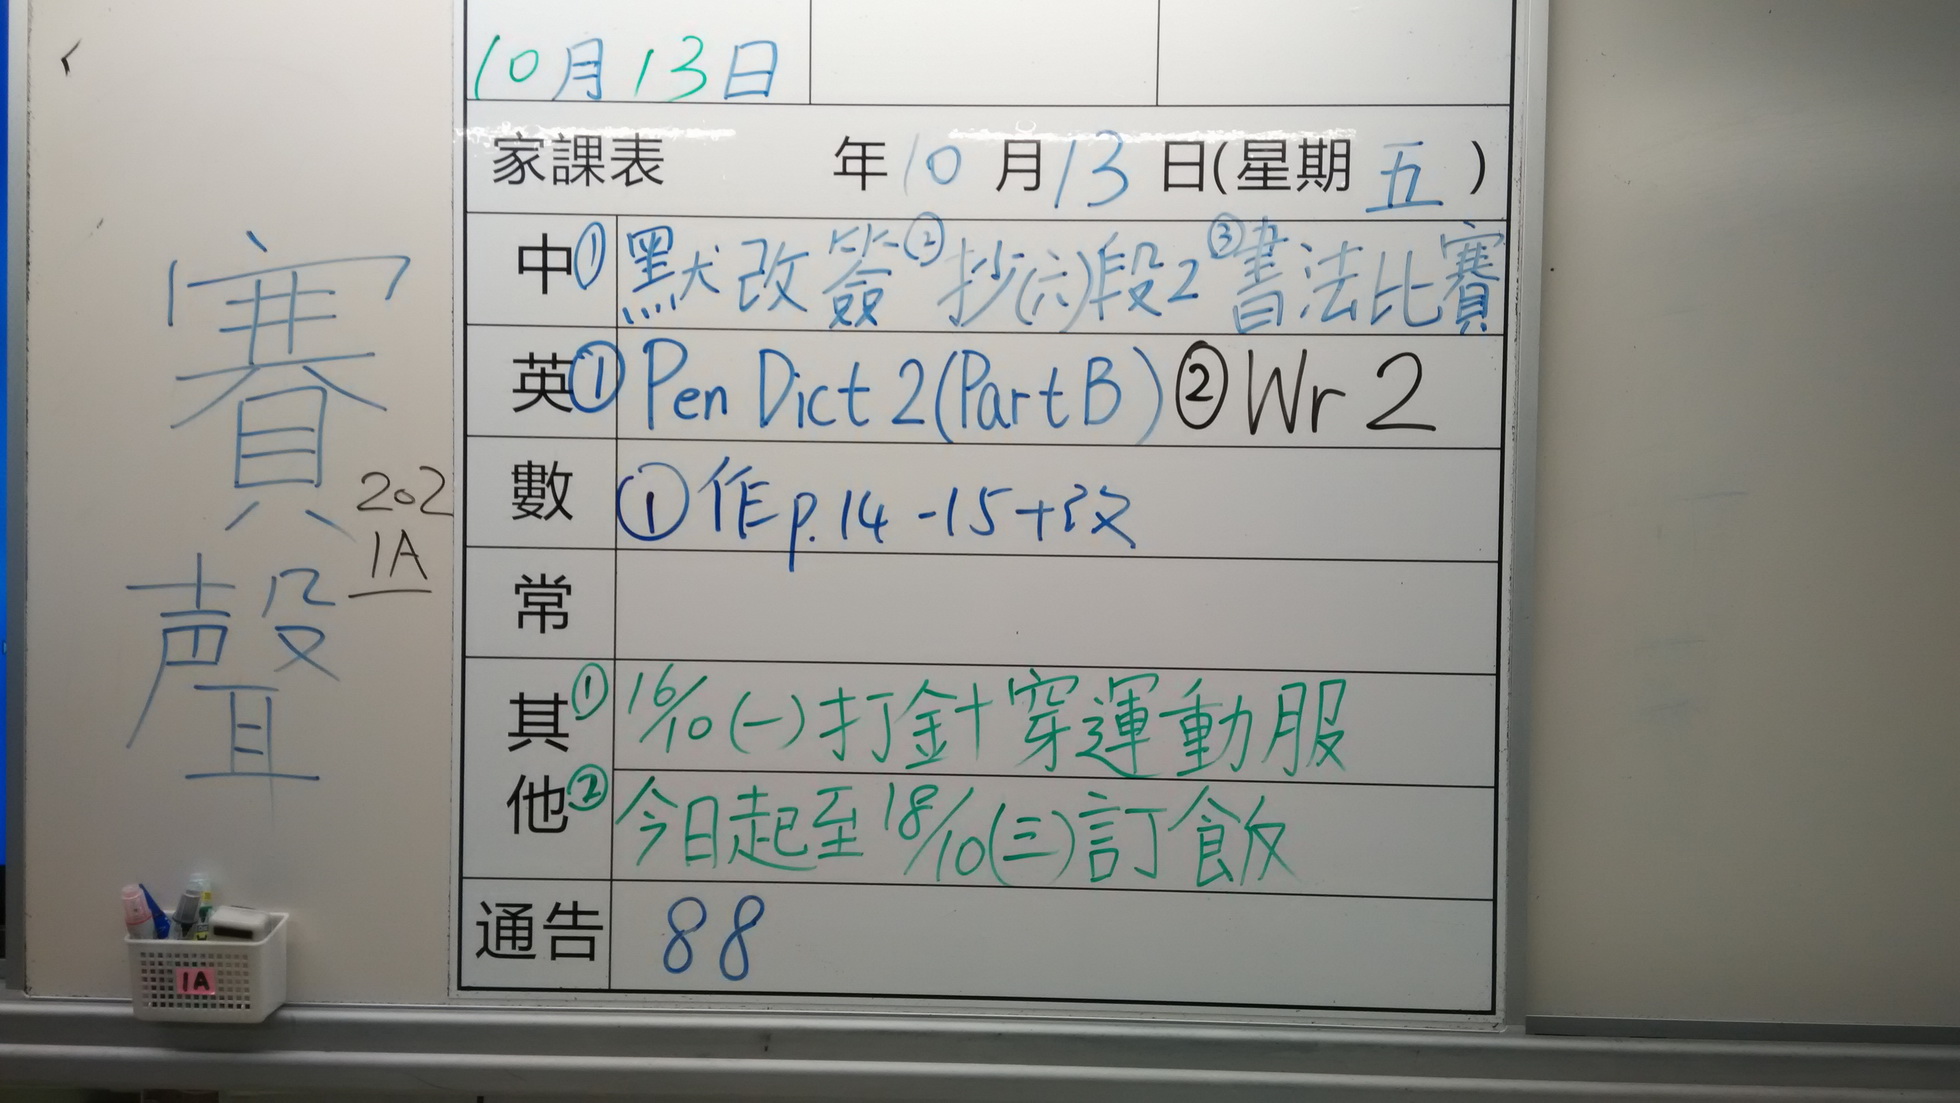 10月13日
家課表 年10月13日(星期五)
中①默改簽②抄(六)段2③書法比賽
英①Pen Dict 2(Part B)②Wr 2
數①作p.14-15+改
常
其他①16/10(一)打針穿運動服
②今日起至18/10(三)訂飯
通告 88
賽
聲
202
1A
1A